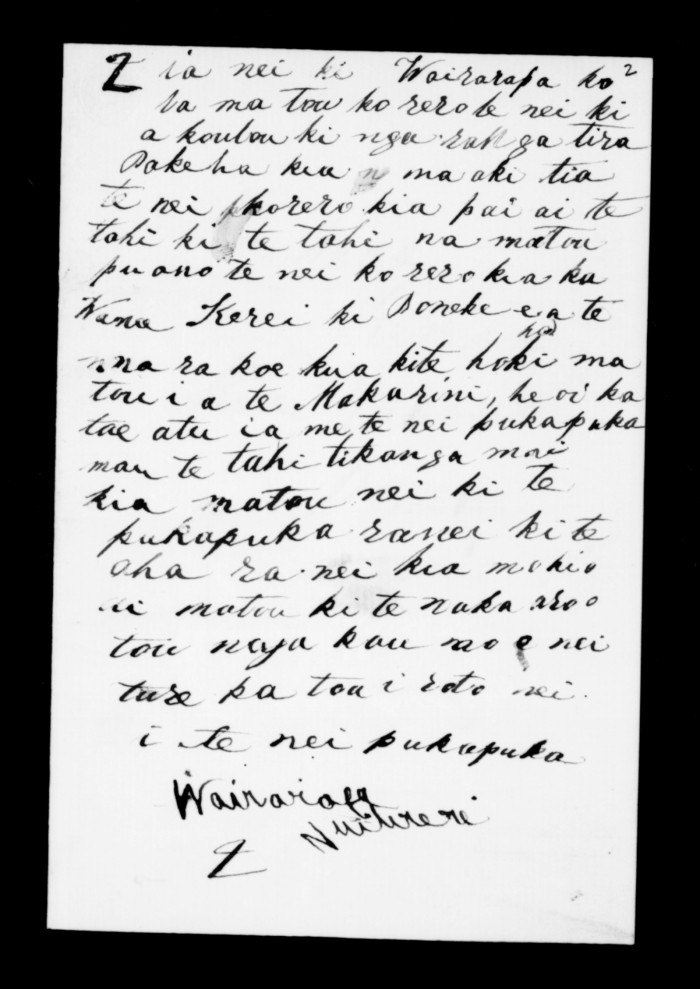 2 ia nei ki Wairarapa ko 2
ta ma tou ko rero te nei ki
a koutou ki nga rangatira
Pakeha kia ma aki tia
te nei korero kia pai ai te
tahi ki te tahi na matou
pu ano te nei ko rero kia ka
Wana Kerei ki Poneke e a te
na ra koe kia kite hoki ma
tou i a te Makarini, he oi ka
tae atu ia me te nei pukapuka
mau te tahi tikanga mai
kia matou nei ki te
pukapuka ranei ki te
aha ra nei kia mohio
ai matou ki te naka aroo
tou ngakau mo e nei
ture ka tou i roto nei
i te nei pukapuka
Wairarapa
Nuitireni
2